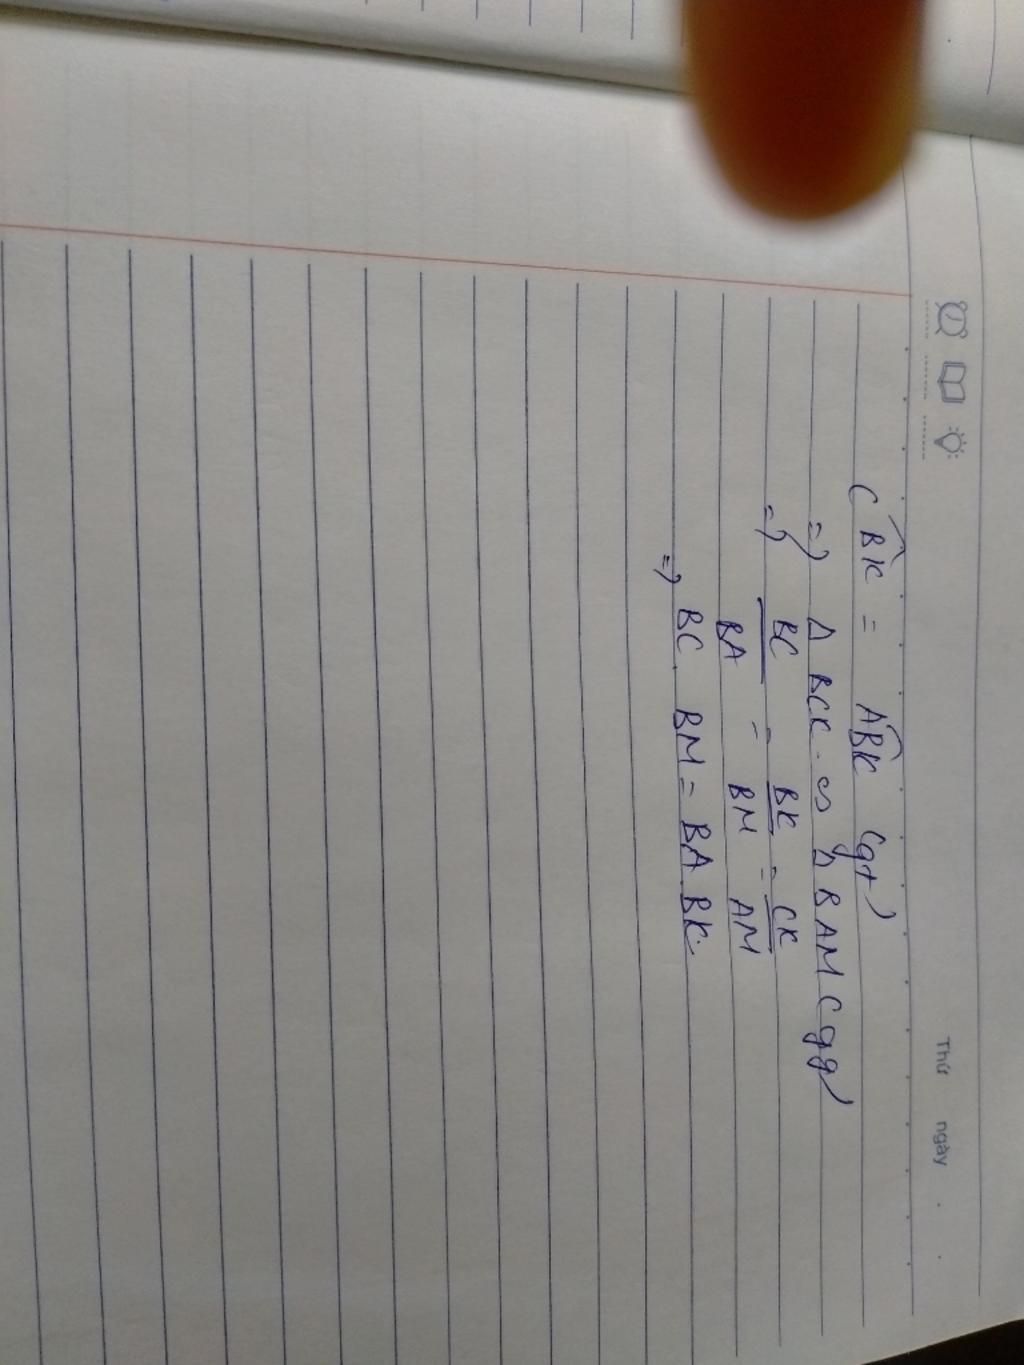 Thứ ngày
CB̂K = AB̂K (gt)
=> Δ BCK ∽ Δ BAM (gg)
=> BC/BA = BK/BM = CK/AM
=> BC . BM = BA . BK.